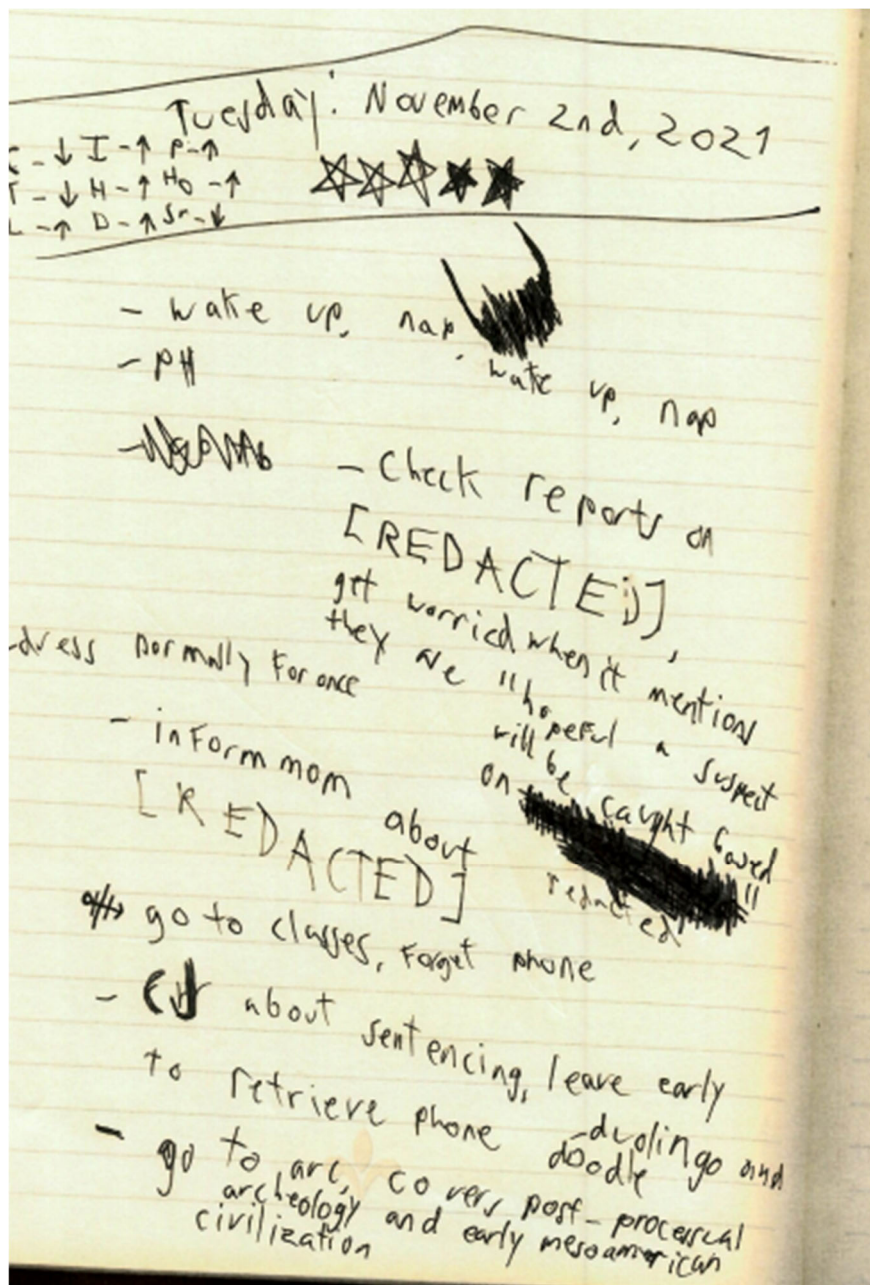 Tuesday: November 2nd, 2021
- ↓ I - ↑ P - ↑
- ↓ H - ↑ HO - ↑
L - ↑ D - ↑ Sr - ↓
- wake up, nap, wake up, nap
- PH
- Check reports on
[REDACTED],
get worried when it mentions
they are "hopeful a suspect
will be caught based
on "
redacted
- dress normally for once
- inform mom about
[REDACTED]
go to classes, forget phone
- about sentencing, leave early
to retrieve phone
- duolingo and
doodle
- go to arc, covers post-processual
archeology and early mesoamerican
civilization